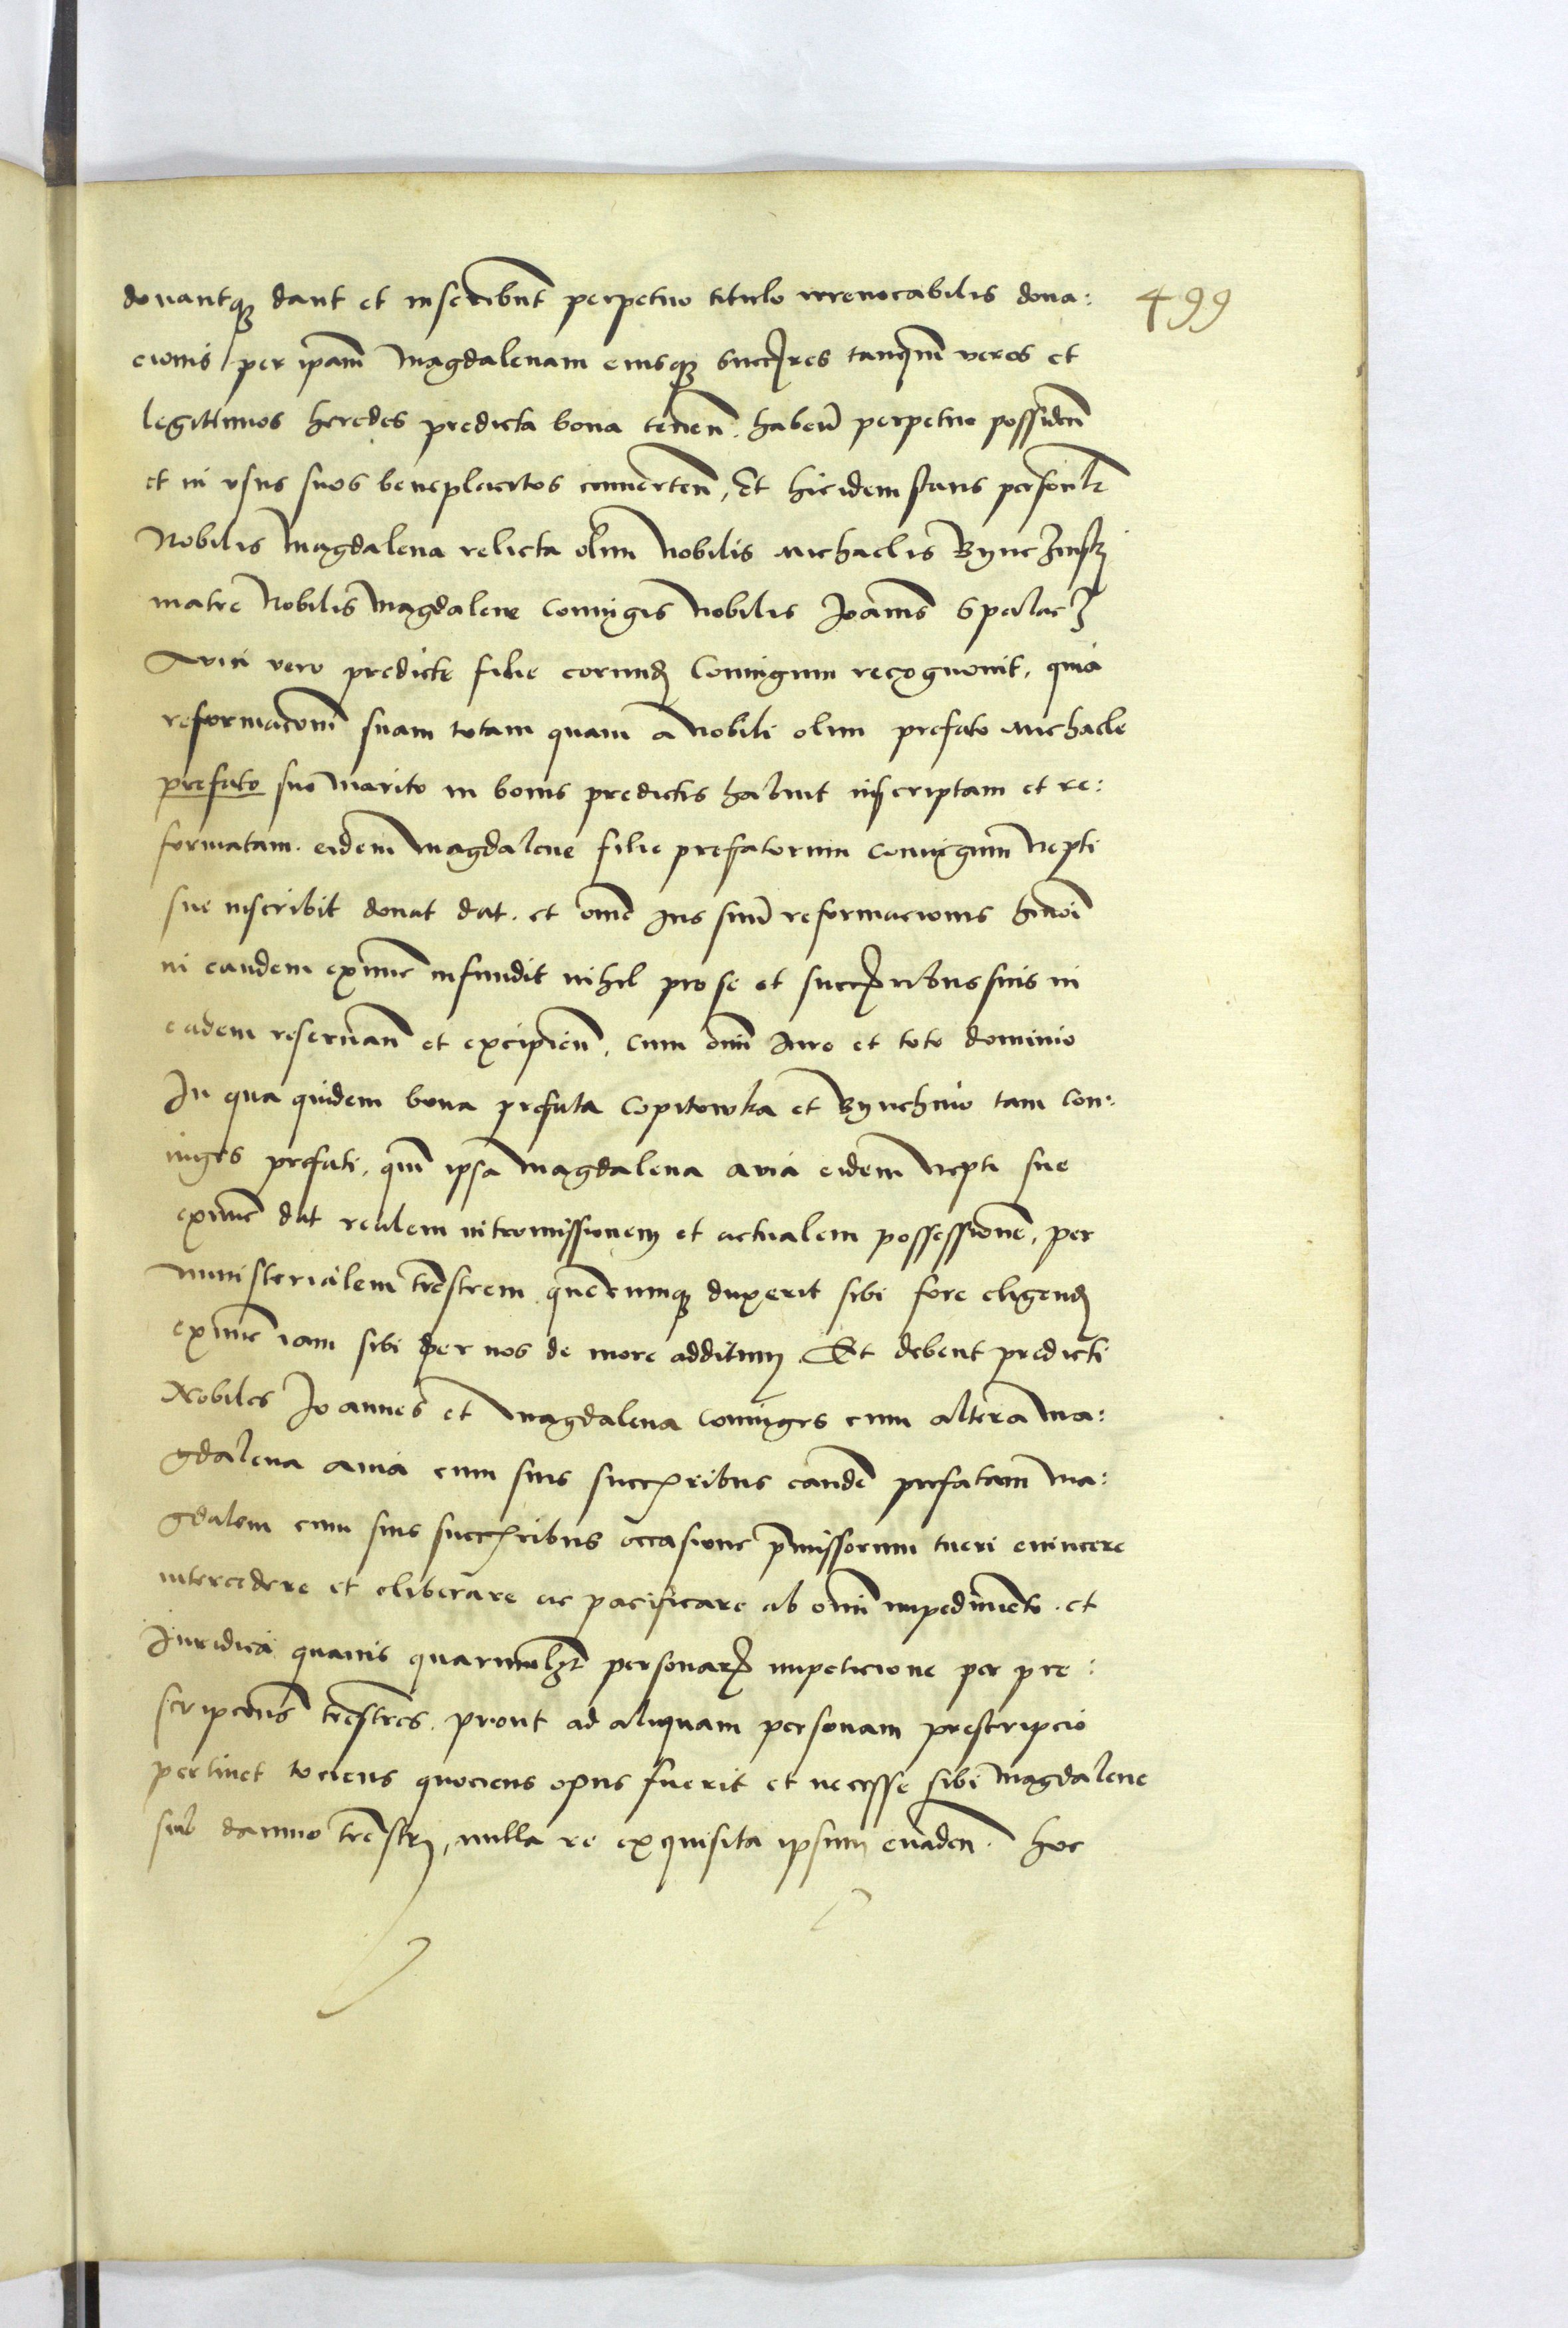 donantq dant et inscribnt perpetuo titulo irreuocabilis dona: 499
cionis per ipam Magdalenam eiusq succres tanqm veros et
legittimos heredes predicta bona tenen. haben perpetuo possiden
et in vsus suos beneplacitos conuerten, Et hic idem stans personlr
Nobilis Magdalena relicta olim Nobilis Michaelis
matre Nobilis Magdalene Coniugis Nobilis Joanis
Avia vero predicte filie eorund Coniugum recognouit, quia
reformacom suam totam quam a Nobili olim prefato Michaele
prefato suo Marito in bonis predictis habuit inscriptam et re:
formatam. eidem Magdalene filie prefatorum coniugum Nepti
sue inscribit donat dat. et ome Ius suum reformacionis hmoi
in eandem exnunc infundit nihil pro se et succribus suis in
eadem reseruan et excipien, cum omi Iure et toto dominio
In qua quidem bona prefata Copitowka et Bynchino tam Con:
iuges prefati, qm ipsa Magdalena avia eidem Nepti sue
exnunc dat realem intromissionem et actualem possessione, per
ministerialem trestrem quecumq duxerit sibi fore eligend
exnunc iam sibi per nos de more additum. Et debent predicti
Nobiles Joannes et Magdalena Coniuges cum altera Ma:
gdalena auia cum suis succribus eande prefatam Ma:
gdalem cum suis succribus occasione pmissorum tueri euincere
intercedere et eliberare ac pacificare ab omi impedimento. et
Iuridica quauis quarumlzt personar impeticione per pre:
scripcoms trestres. prout ad aliquam personam prescripcio
pertinet tociens quociens opus fuerit et necesse sibi Magdalene
sub damno trestri, nulla re exquisita ipsum euaden. hoc